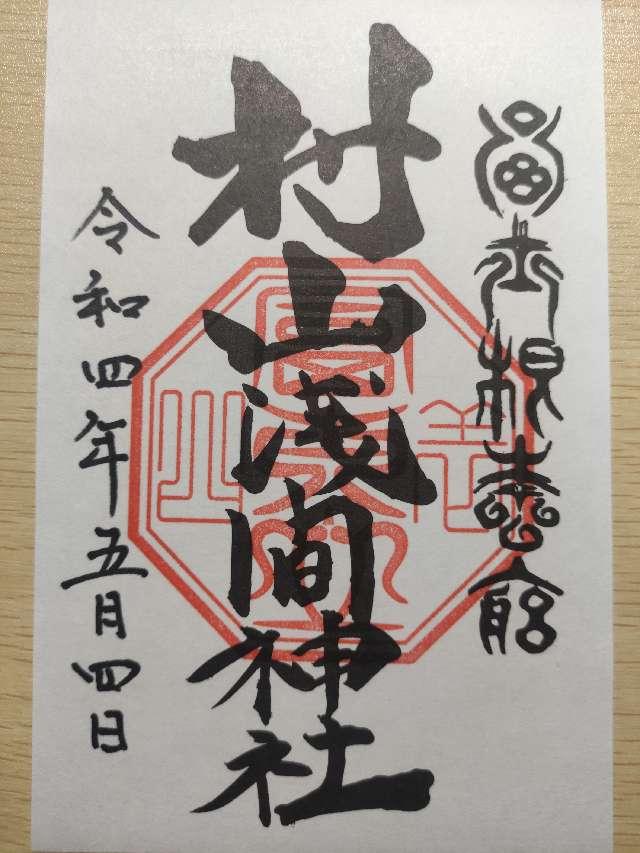 富士根本宮
村山浅間神社
令和四年五月四日